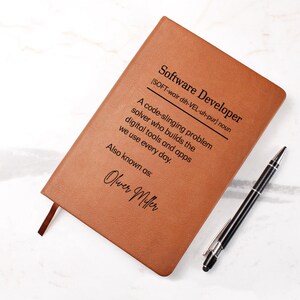 Software Developer
[SOFT-wair dih-VEL-uh-pur] noun
A code-slinging problem
solver who builds the
digital tools and apps
we use every day.
Also known as:
Oliver Miller